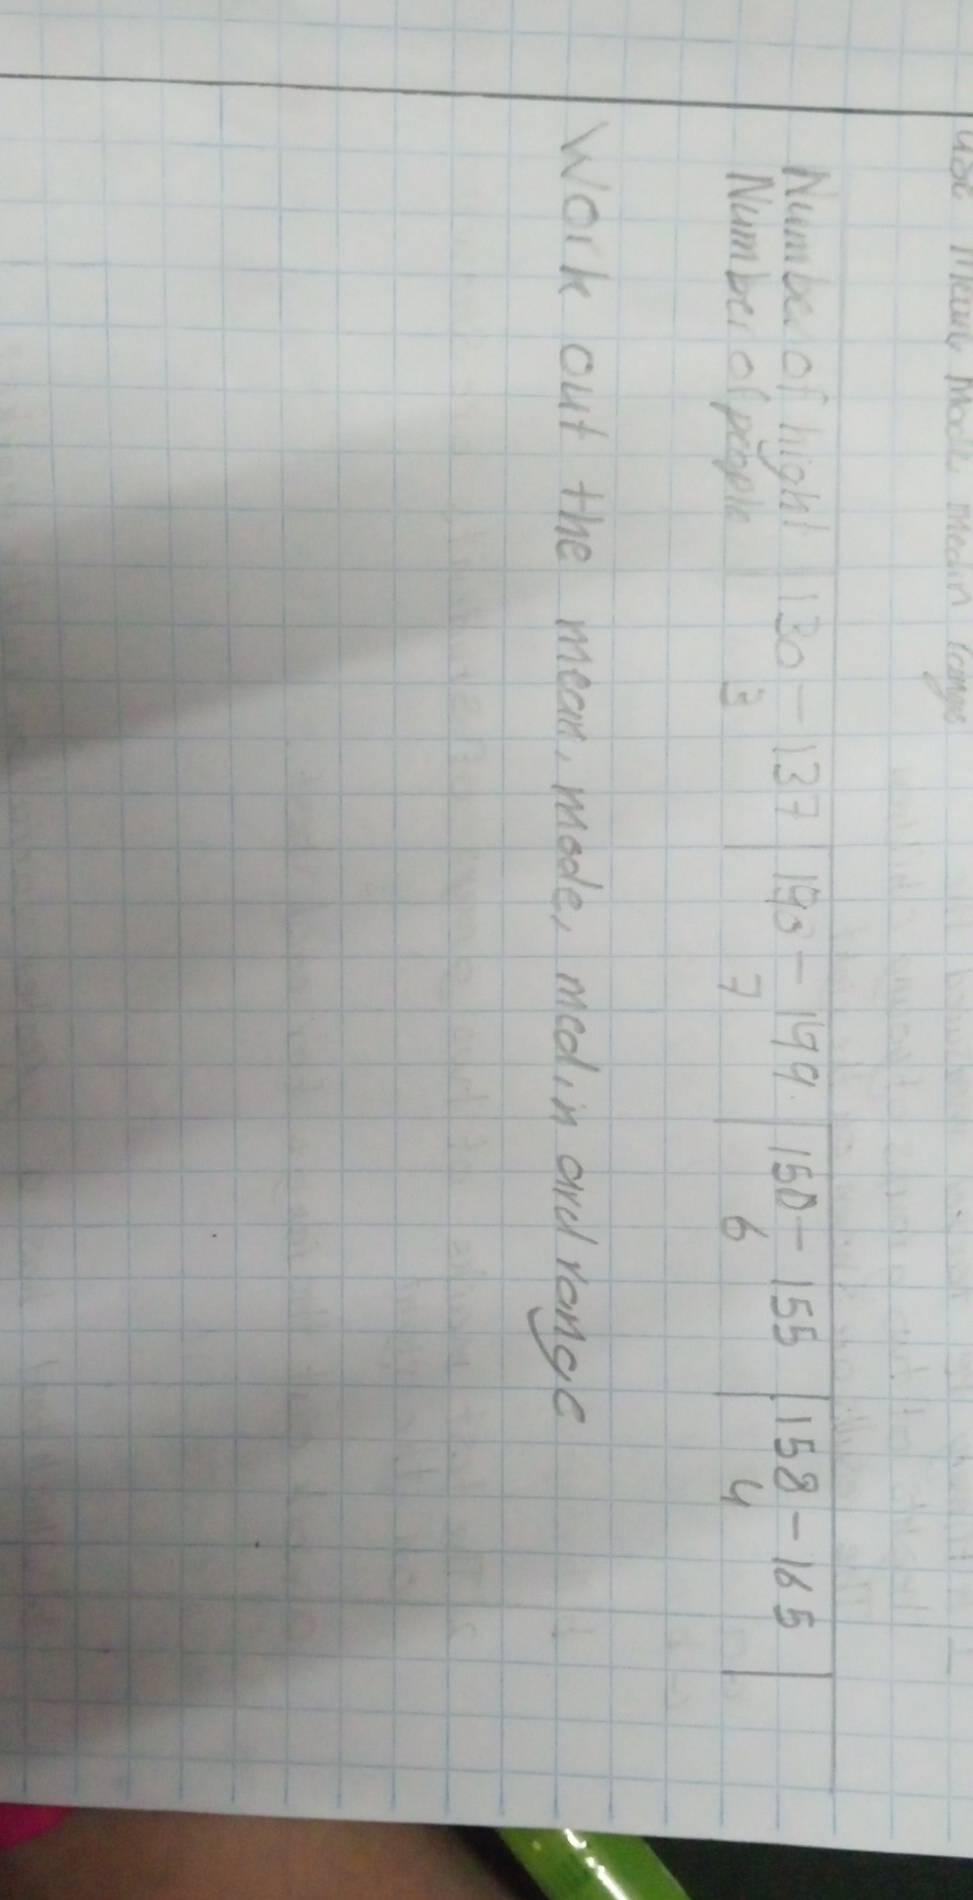 use mean, mode, medin range
Number of hight | 130 - 137 | 140 - 149 | 150 - 155 | 158 - 165 |
Number of people | 3 | 7 | 6 | 4 |
Work out the mean, mode, medin and range